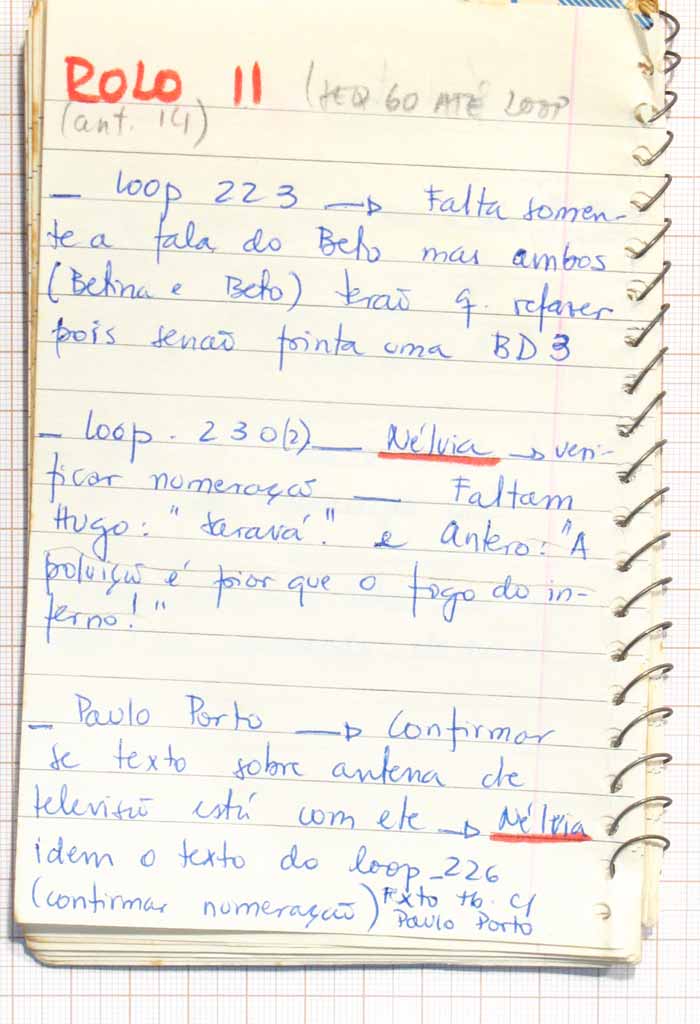 ROLO 11 (SEQ 60 ATÉ LOOP
(ant. 14)
– loop 223 → Falta somen-
te a fala do Beto mas ambos
(Betina e Beto) terão q. refazer
pois senão pinta uma BD 3
– loop. 230(2) — Nélvia → veri-
ficar numeração — Faltam
Hugo: "Saravá." e Antero: "A
poluição é pior que o fogo do in-
ferno!"
– Paulo Porto → Confirmar
se texto sobre antena de
televisão está com ele → Nélvia
idem o texto do loop_226
(confirmar numeração) Texto tb. c/
Paulo Porto